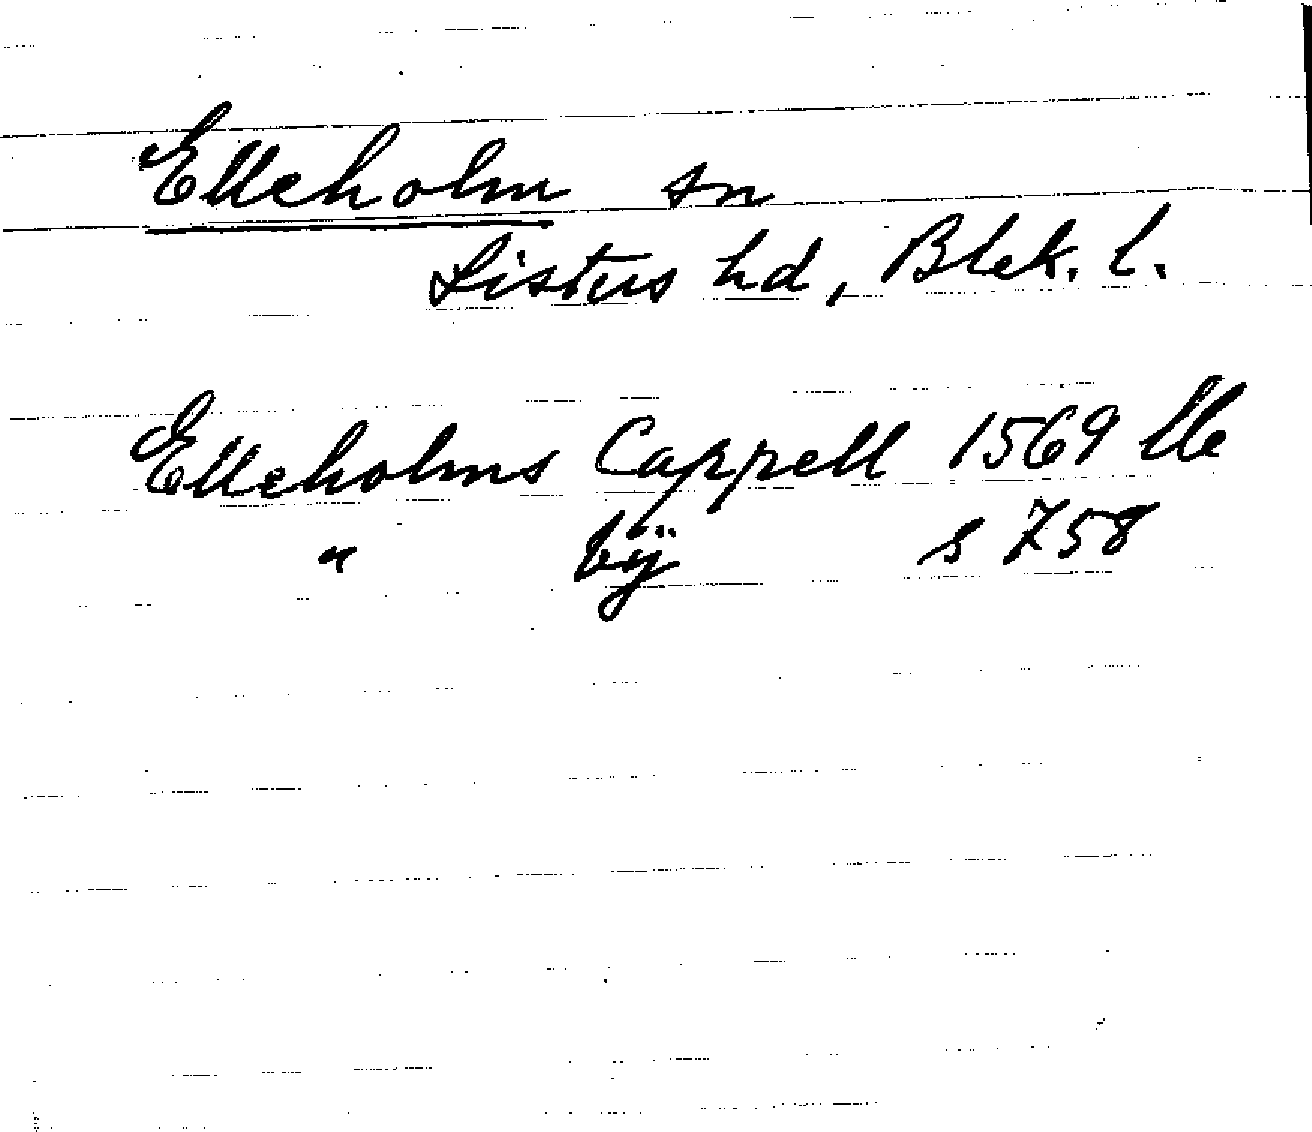 Elleholm sn
Listers hd, Blek. l.
Elleholms Cappell 1569 lle
" bÿ s 758